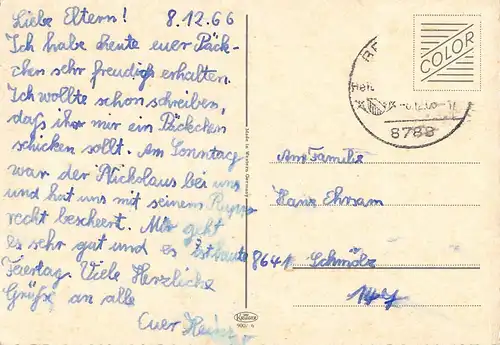 Liebe Eltern! 8.12.66
Ich habe heute euer Päck-
chen sehr freudig erhalten.
Ich wollte schon schreiben,
daß ihr mir ein Päckchen
schicken sollt. Am Sonntag
war der Nickolaus bei uns
und hat uns mit seinem
recht beschert. Mir geht
es sehr gut und es ist heute
Feiertag. Viele Herzliche
Grüße an alle
Euer Heinz
Made in Western Germany
Krüger
COLOR
8788
An Familie
Hans Ehrsam
8641 Schmölz